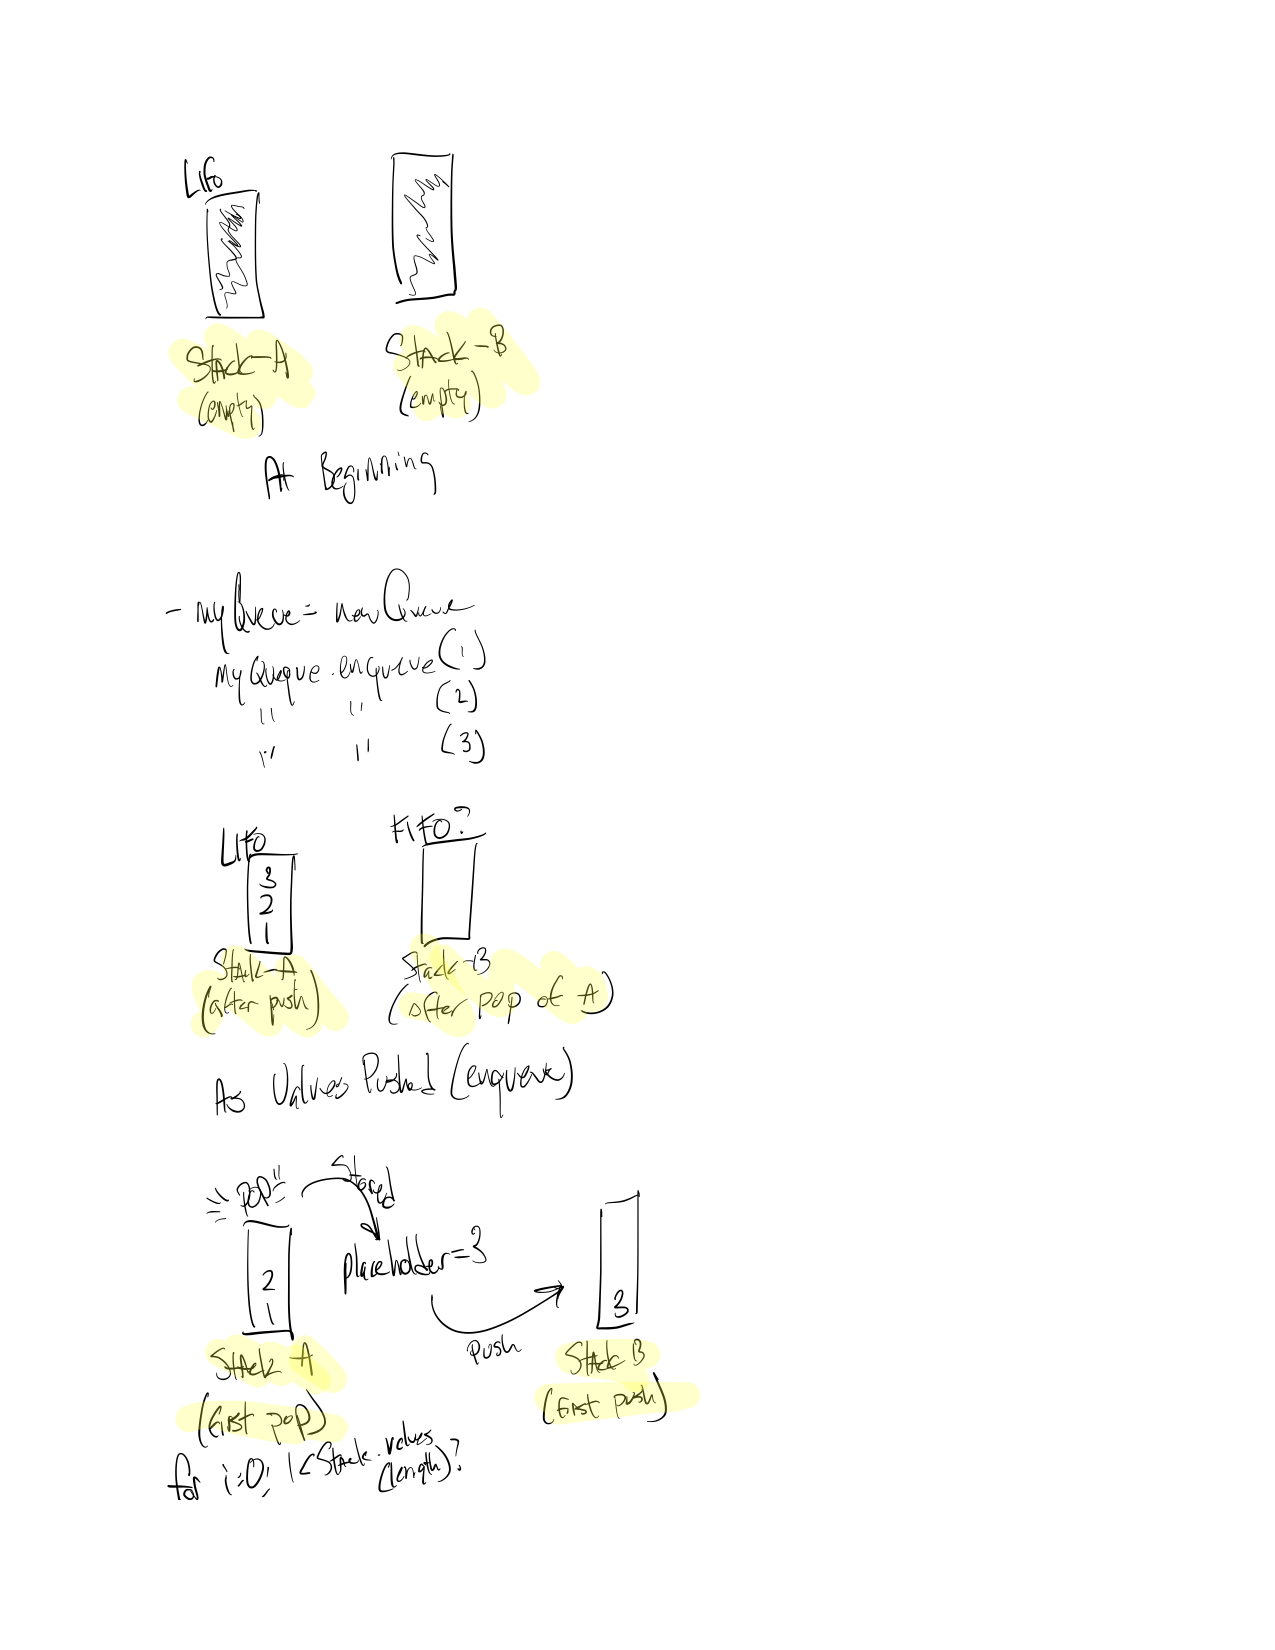 LIFO
Stack-A
(empty)
Stack-B
(empty)
At Beginning
- myQueue = new Queue
myQueque.enqueue (1)
" " (2)
" " (3)
LIFO
3
2
1
Stack-A
(after push)
FIFO?
Stack-B
(after pop of A)
As Values Pushed (enqueue)
"POP"
Stored
placeholder=3
2
1
Push
3
Stack A
(first pop)
Stack B
(first push)
for i=0; i<Stack.values
(length)?